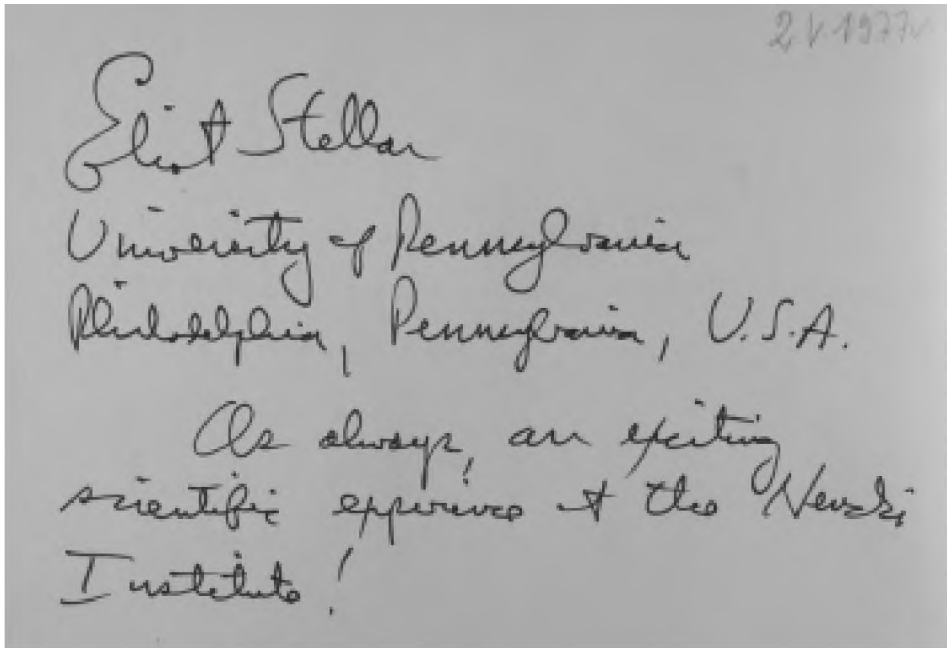 2 V. 1977
Eliot Stellar
University of Pennsylvania
Philadelphia, Pennsylvania, U.S.A.
As always, an exciting
scientific experience at the Nencki
Institute!